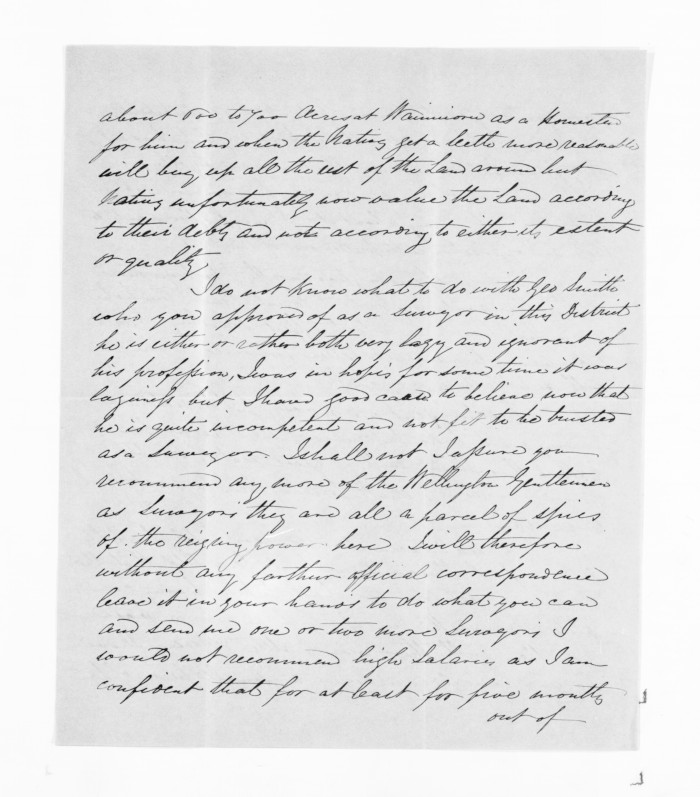 about 600 to 700 Acres at Waimiron as a Homestead
for him and when the Natives get a little more reasonable
will buy up all the rest of the Land around but
Natives unfortunately now value the Land according
to their debts and not according to either its extent
or quality
I do not know what to do with Geo Smith
who you approved of as a Surveyor in this District
he is either or rather both very lazy and ignorant of
his profession, I was in hopes for some time it was
laziness but I have good cause to believe now that
he is quite incompetent and not fit to be trusted
as a Surveyor. I shall not I assure you
recommend any more of the Wellington Gentlemen
as Surveyors they are all a parcel of spies
of the reigning power here I will therefore
without any farther official correspondence
leave it in your hands to do what you can
and send me one or two more Surveyors I
would not recommend high Salaries as I am
confident that for at least for five months
out of